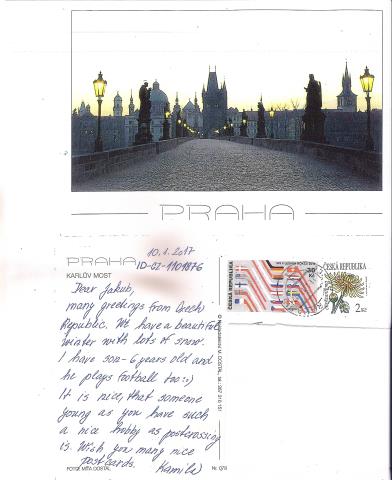 PRAHA
PRAHA
10.1.2017
ID-CZ-1101876
KARLŮV MOST
Dear Jakub,
many greetings from Czech
Republic. We have a beautiful
winter with lots of snow.
I have son - 6 years old and
he plays football too :)
It is nice, that someone
young as you have such
a nice hobby as postcrossing
is. Wish you many nice
postcards. Kamila
FOTO: MÍŤA DOSTÁL
ČESKÁ REPUBLIKA
ČESKÁ REPUBLIKA
2 Kč